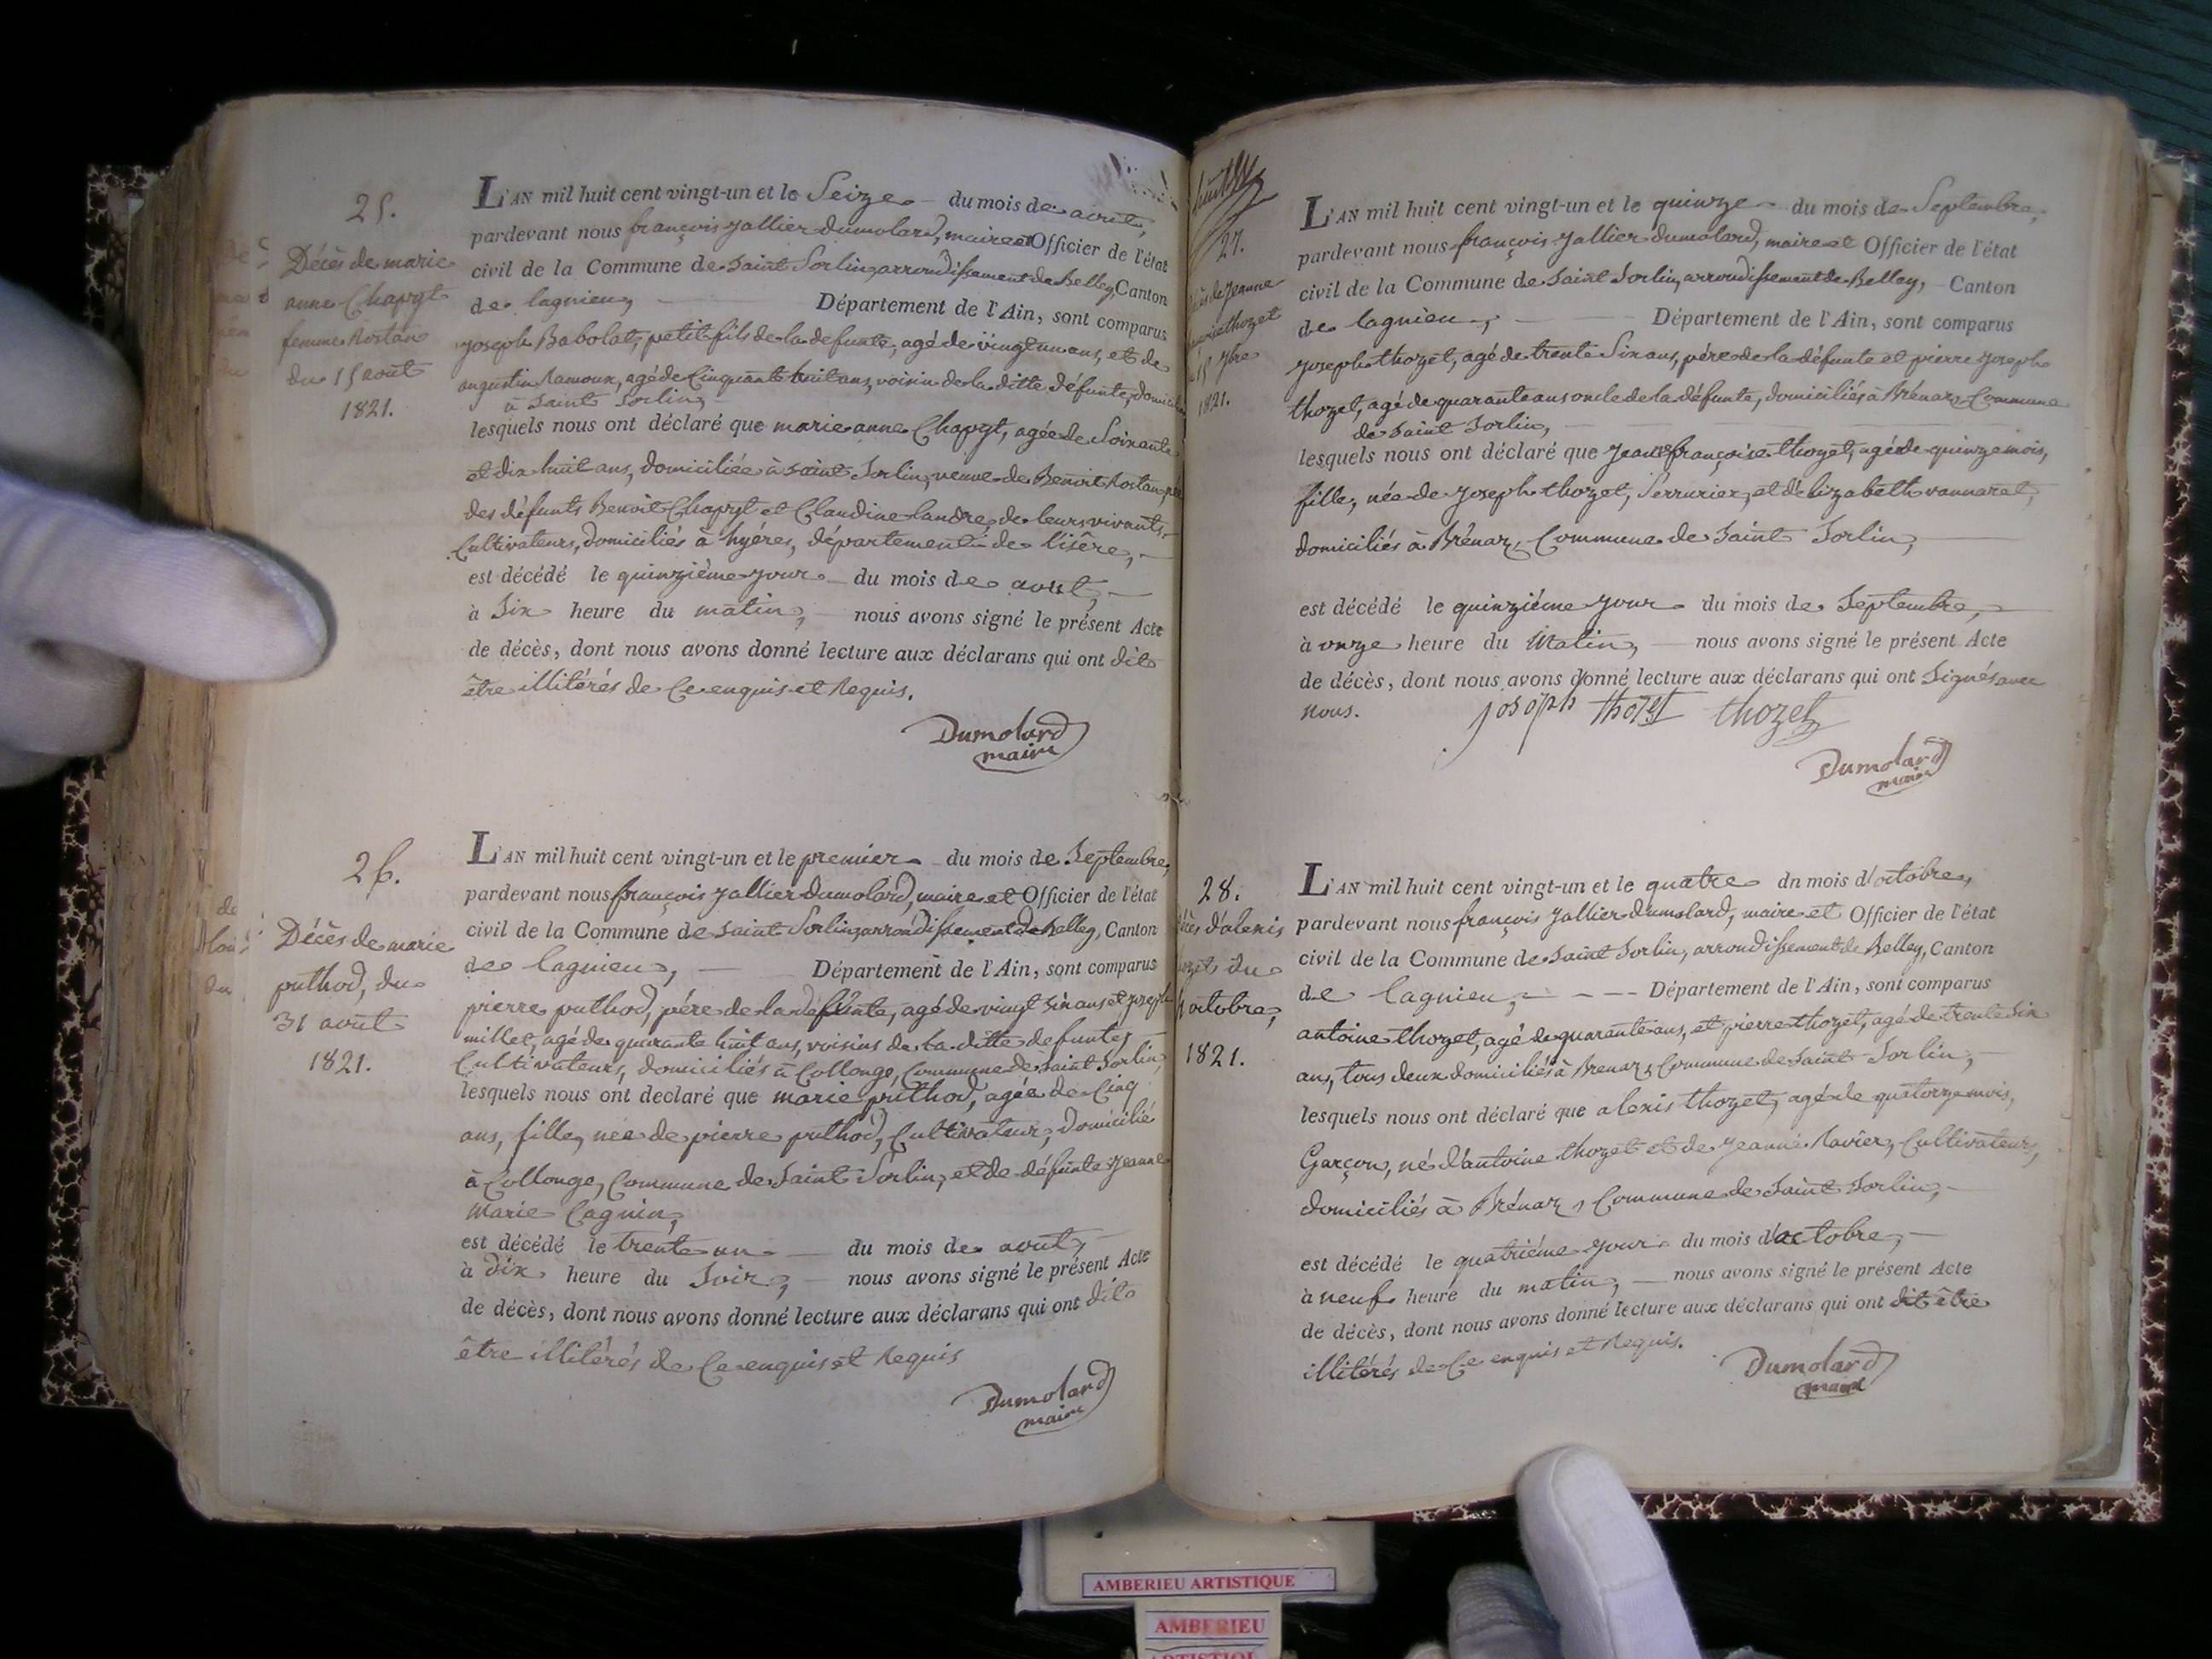 25.
Décès de marie
anne Chapyt
femme Rostan
du 15 août
1821.
L'AN mil huit cent vingt-un et le Seize du mois de aout,
pardevant nous françois Jallier dumolard, maire et Officier de l'état
civil de la Commune de Saint Sorlin, arrondissement de Belley, Canton
de lagnieu, Département de l'Ain, sont comparus
joseph Babolat, petit fils de la defunte, agé de vingt un ans, et de
augustin Ramoux, agé de Cinquante huit ans, voisin de la ditte défunte, domicil
à Saint Sorlin,
lesquels nous ont déclaré que marie anne Chapyt, agée de Soixante
et dix huit ans, domiciliée à Saint Sorlin, veuve de Benoit Rostan,
des défunts Benoit Chapyt et Claudine landre, de leurs vivants,
Cultivateurs, domiciliés à hyéres, département de l'isère,
est décédé le quinzième jour du mois de aout,
à Six heure du matin, nous avons signé le présent Acte
de décès, dont nous avons donné lecture aux déclarans qui ont dit
être illitérés de Ce enquis et Requis.
Dumolard
maire
26.
Décès de marie
puthod, du
31 août
1821.
L'AN mil huit cent vingt-un et le premier du mois de Septembre,
pardevant nous françois Jallier Dumolard, maire et Officier de l'état
civil de la Commune de Saint Sorlin, arrondissement de Belley, Canton
de lagnieu, Département de l'Ain, sont comparus
pierre puthod, pére de la défunte, agé de vingt Six ans et joseph
millet, agé de quarante huit ans, voisins de la ditte defunte,
Cultivateurs, domiciliés à Collonge, Commune de Saint Sorlin,
lesquels nous ont declaré que marie puthod, agée de Cinq
ans, fille, née de pierre puthod, Cultivateur, domicilié
à Collonge, Commune de Saint Sorlin, et de défunte jeanne
Marie Cagnin,
est décédé le trente un du mois de aout,
à dix heure du Soir, nous avons signé le présent Acte
de décès, dont nous avons donné lecture aux déclarans qui ont dit
être illitérés de Ce enquis et Requis
Dumolard
maire
27.
de jeanne
thozet
15 7bre
1821.
L'AN mil huit cent vingt-un et le quinze du mois de Septembre,
pardevant nous françois Jallier dumolard, maire et Officier de l'état
civil de la Commune de Saint Sorlin, arrondissement de Belley, Canton
de lagnieu, Département de l'Ain, sont comparus
joseph thozet, agé de trente Six ans, pére de la défunte et pierre joseph
thozet, agé de quarante ans oncle de la défunte, domiciliés à Brénaz, Commune
de Saint Sorlin,
lesquels nous ont déclaré que jeanne françoise thozet, agé de quinze mois,
fille, née de joseph thozet, Serrurier, et d'élizabeth vannaret,
domiciliés à Brénaz, Commune de Saint Sorlin,
est décédé le quinzième jour du mois de Septembre,
à onze heure du Matin, nous avons signé le présent Acte
de décès, dont nous avons donné lecture aux déclarans qui ont Signés avec
nous.
joseph thozet thozet
Dumolard
maire
28.
d'alexis
du
octobre,
1821.
L'AN mil huit cent vingt-un et le quatre dn mois d'octobre,
pardevant nous françois Jallier dumolard, maire et Officier de l'état
civil de la Commune de Saint Sorlin, arrondissement de Belley, Canton
de lagnieu, Département de l'Ain, sont comparus
antoine thozet, agé de quarante ans, et pierre thozet, agé de trente Six
ans, tous deux domiciliés à Brenaz, Commune de Saint Sorlin,
lesquels nous ont déclaré que alexis thozet, agé de quatorze mois,
Garçon, né d'antoine thozet et de jeanne Ravier, Cultivateurs,
domiciliés à Brénaz, Commune de Saint Sorlin,
est décédé le quatrième jour du mois d'octobre,
à neuf heure du matin, nous avons signé le présent Acte
de décès, dont nous avons donné lecture aux déclarans qui ont dit être
illitérés de Ce enquis et Requis.
Dumolard
maire
AMBERIEU ARTISTIQUE
AMBERIEU
ARTISTIQUE